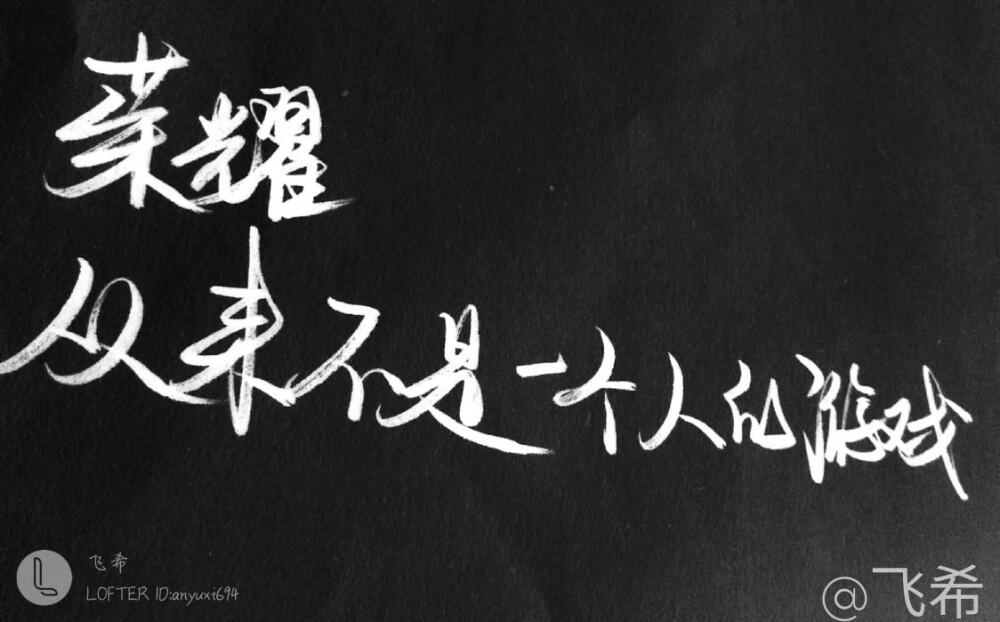 荣耀
从来不是一个人的游戏
飞希
LOFTER ID:anyuxi694
@飞希